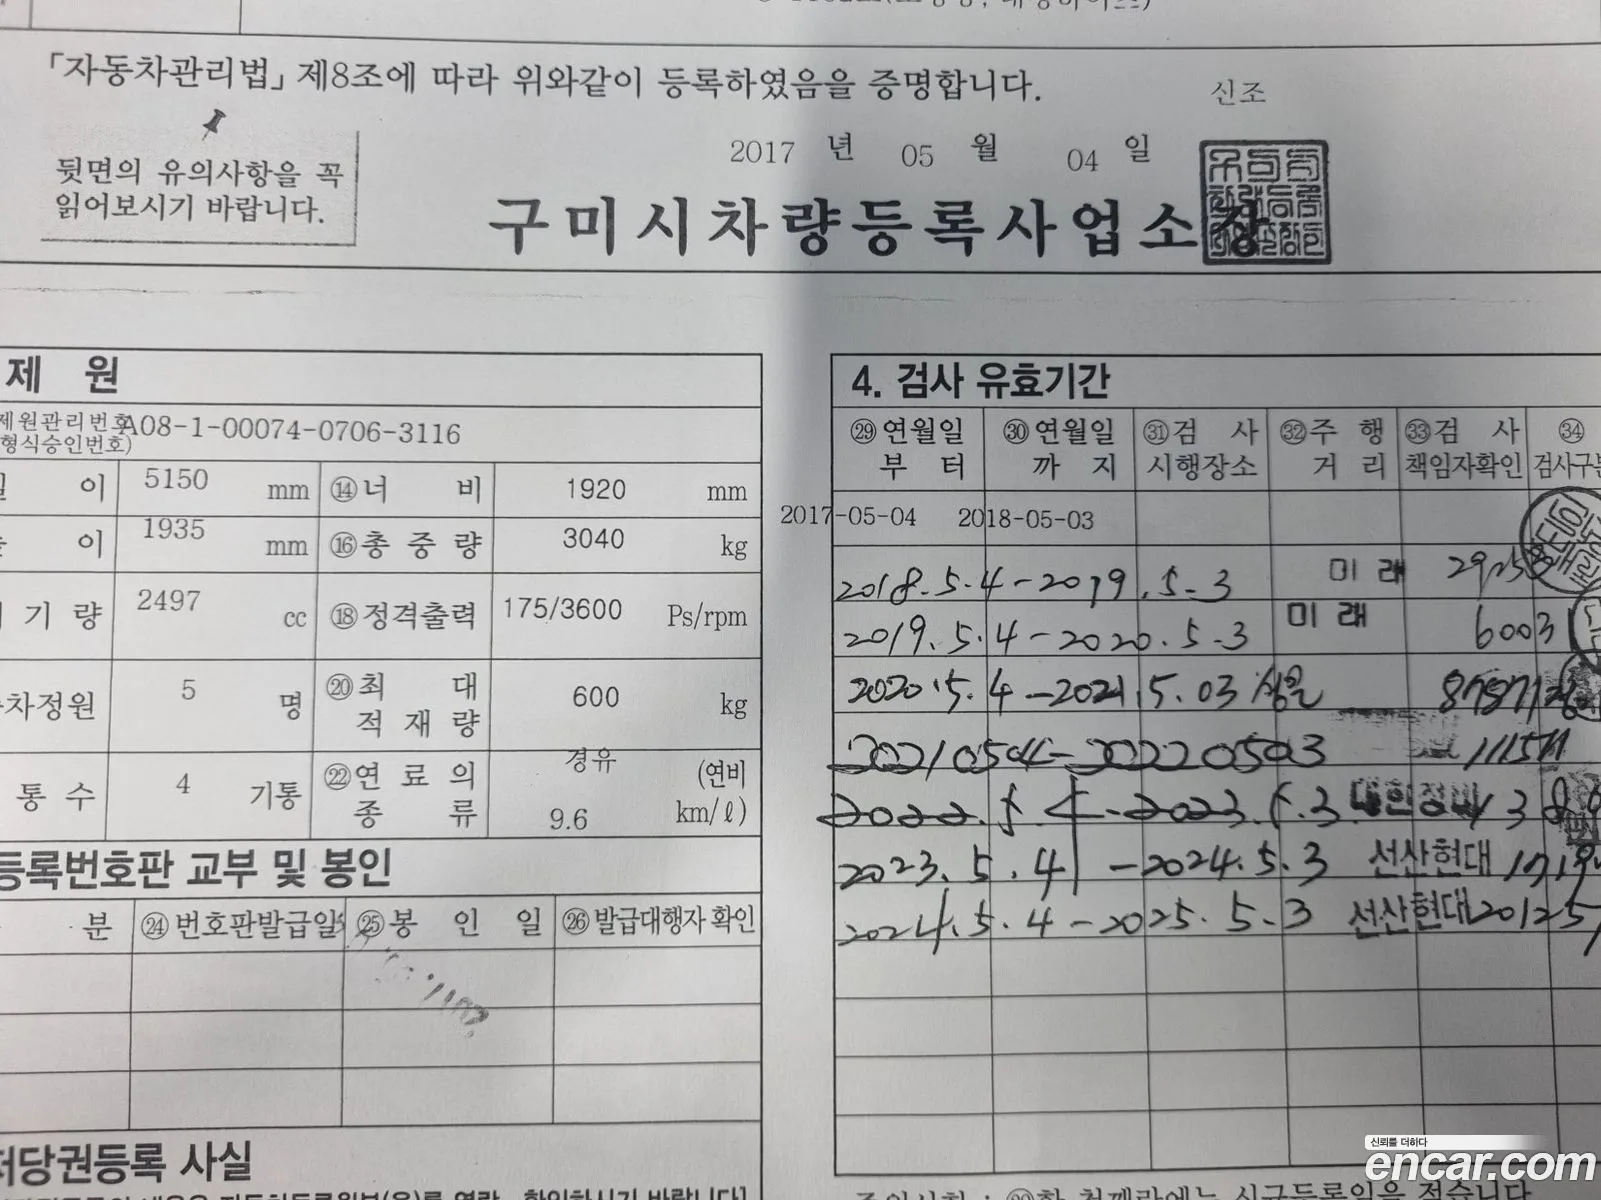 「자동차관리법」 제8조에 따라 위와같이 등록하였음을 증명합니다.
신조
뒷면의 유의사항을 꼭
읽어보시기 바랍니다.
2017 년 05 월 04 일
구미시차량등록사업소장
제 원
제원관리번호
(형식승인번호)
A08-1-00074-0706-3116
이 5150 mm ⑭너 비 1920 mm
이 1935 mm ⑯총 중 량 3040 kg
기 량 2497 cc ⑱정격출력 175/3600 Ps/rpm
차정원 5 명 ⑳최 대 적 재 량 600 kg
통 수 4 기통 ㉒연 료 의 종 류 경유 9.6 (연비 km/ℓ)
등록번호판 교부 및 봉인
분 ㉔번호판발급일 ㉕봉 인 일 ㉖발급대행자 확인
저당권등록 사실
4. 검사 유효기간
㉙연월일 부 터 ㉚연월일 까 지 ㉛검 사 시행장소 ㉜주 행 거 리 ㉝검 사 책임자확인 ㉞ 검사구분
2017-05-04 2018-05-03
2018.5.4-2019.5-3 미래
2019.5.4-2020.5-3 미래 6003
2020.5.4-2021.5.03
20210504-20220503
2022.5.4-2023.5.3
2023.5.4-2024.5.3 선산현대
2024.5.4-2025.5.3 선산현대 201257
신뢰를 더하다
encar.com